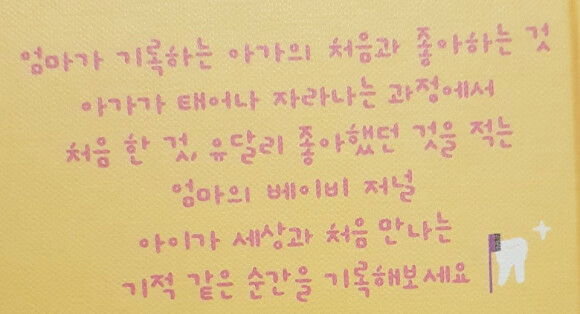 엄마가 기록하는 아가의 처음과 좋아하는 것
아가가 태어나 자라나는 과정에서
처음 한 것, 유달리 좋아했던 것을 적는
엄마의 베이비 저널
아이가 세상과 처음 만나는
기적 같은 순간을 기록해보세요